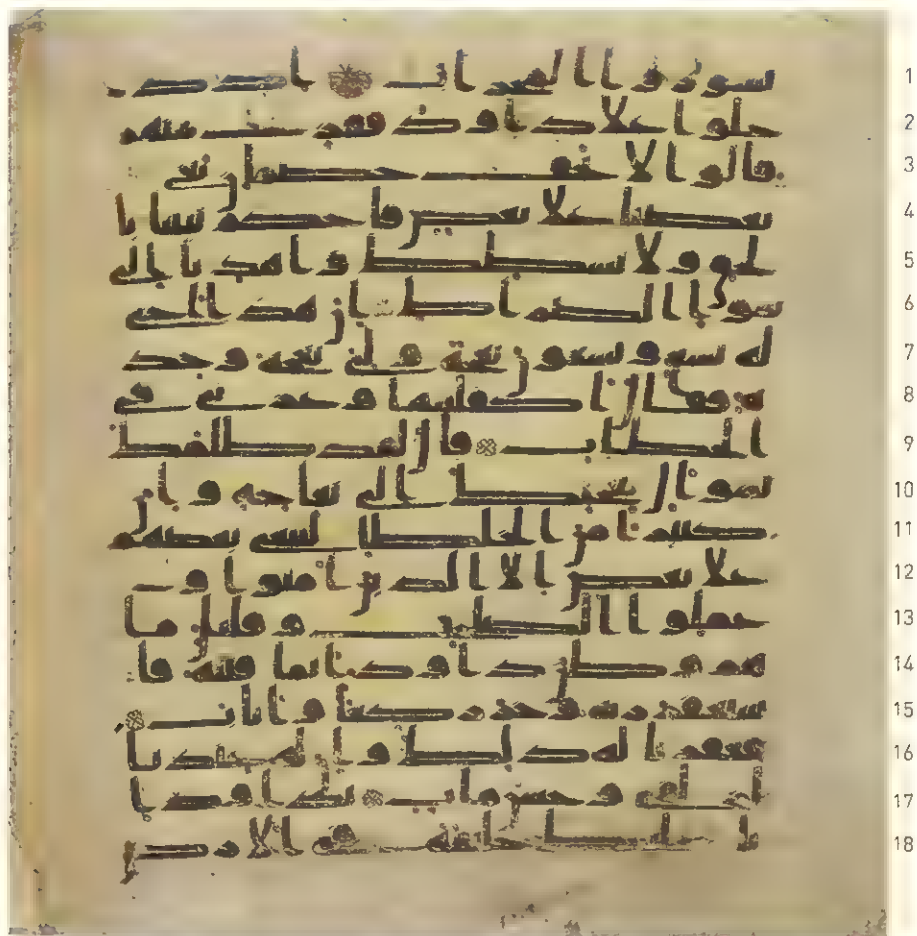 1 تسوروا المحراب اذ د
2 خلوا على داود ففزع منهم
3 قالوا لا تخف خصمان بغى
4 بعضنا على بعض فاحكم بيننا با
5 لحق ولا تشطط واهدنا الى
6 سوا الصراط ان هذا اخى
7 له تسع وتسعون نعجة ولى نعجة وحد
8 ة فقال اكفلنيها وعزنى فى
9 الخطاب قال لقد ظلمك
10 بسوال نعجتك الى نعاجه وان
11 كثيرا من الخلطا ليبغى بعضهم
12 على بعض الا الذين امنوا و
13 عملوا الصلحت وقليل ما
14 هم وظن داود انما فتنه فا
15 ستغفر ربه وخر ركعا واناب
16 فغفرنا له ذلك وان له عندنا
17 لزلفى وحسن ماب يداود ا
18 نا جعلنك خليفة فى الارض